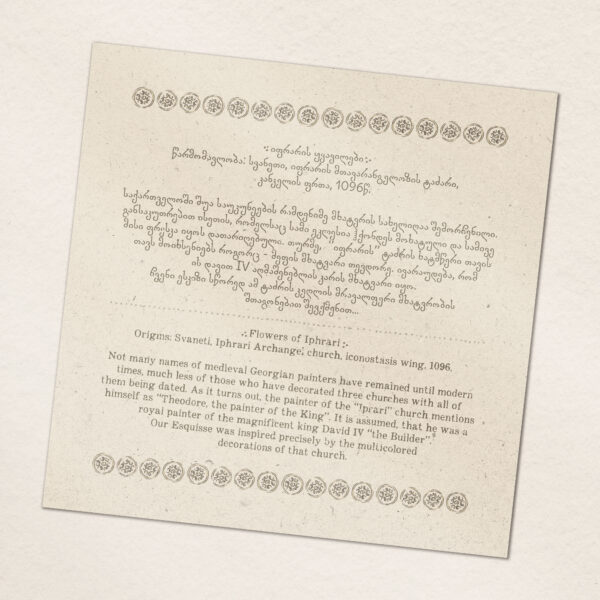 ·:იფრარის ყვავილები:·
წარმომავლობა: სვანეთი, იფრარის მთავარანგელოზის ტაძარი,
კანკელის ფრთა, 1096წ.
საქართველოში შუა საუკუნეების რამდენიმე მხატვრის სახელიღაა შემორჩენილი.
განსაკუთრებით ისეთის, რომელსაც სამი ეკლესია ჰქონდეს მოხატული და სამივე
მისი ფრესკა იყოს დათარიღებული. თურმე, "იფრარის" ტაძრის ხატმწერი თავის
თავს მოიხსენიებს როგორც - მეფის მხატვარი თევდორე. ივარაუდება, რომ
ის დავით IV აღმაშენებლის კარის მხატვარი იყო.
ჩვენი ესკიზი სწორედ ამ ტაძრის კედლის მრავალფერი მხატვრობის
შთაგონებით შევქმენით...
.:Flowers of Iphrari:.
Origins: Svaneti, Iphrari Archangel church, iconostasis wing. 1096.
Not many names of medieval Georgian painters have remained until modern
times, much less of those who have decorated three churches with all of
them being dated. As it turns out, the painter of the "Iprari" church mentions
himself as "Theodore, the painter of the King". It is assumed, that he was a
royal painter of the magnificent king David IV "the Builder".
Our Esquisse was inspired precisely by the multicolored
decorations of that church.